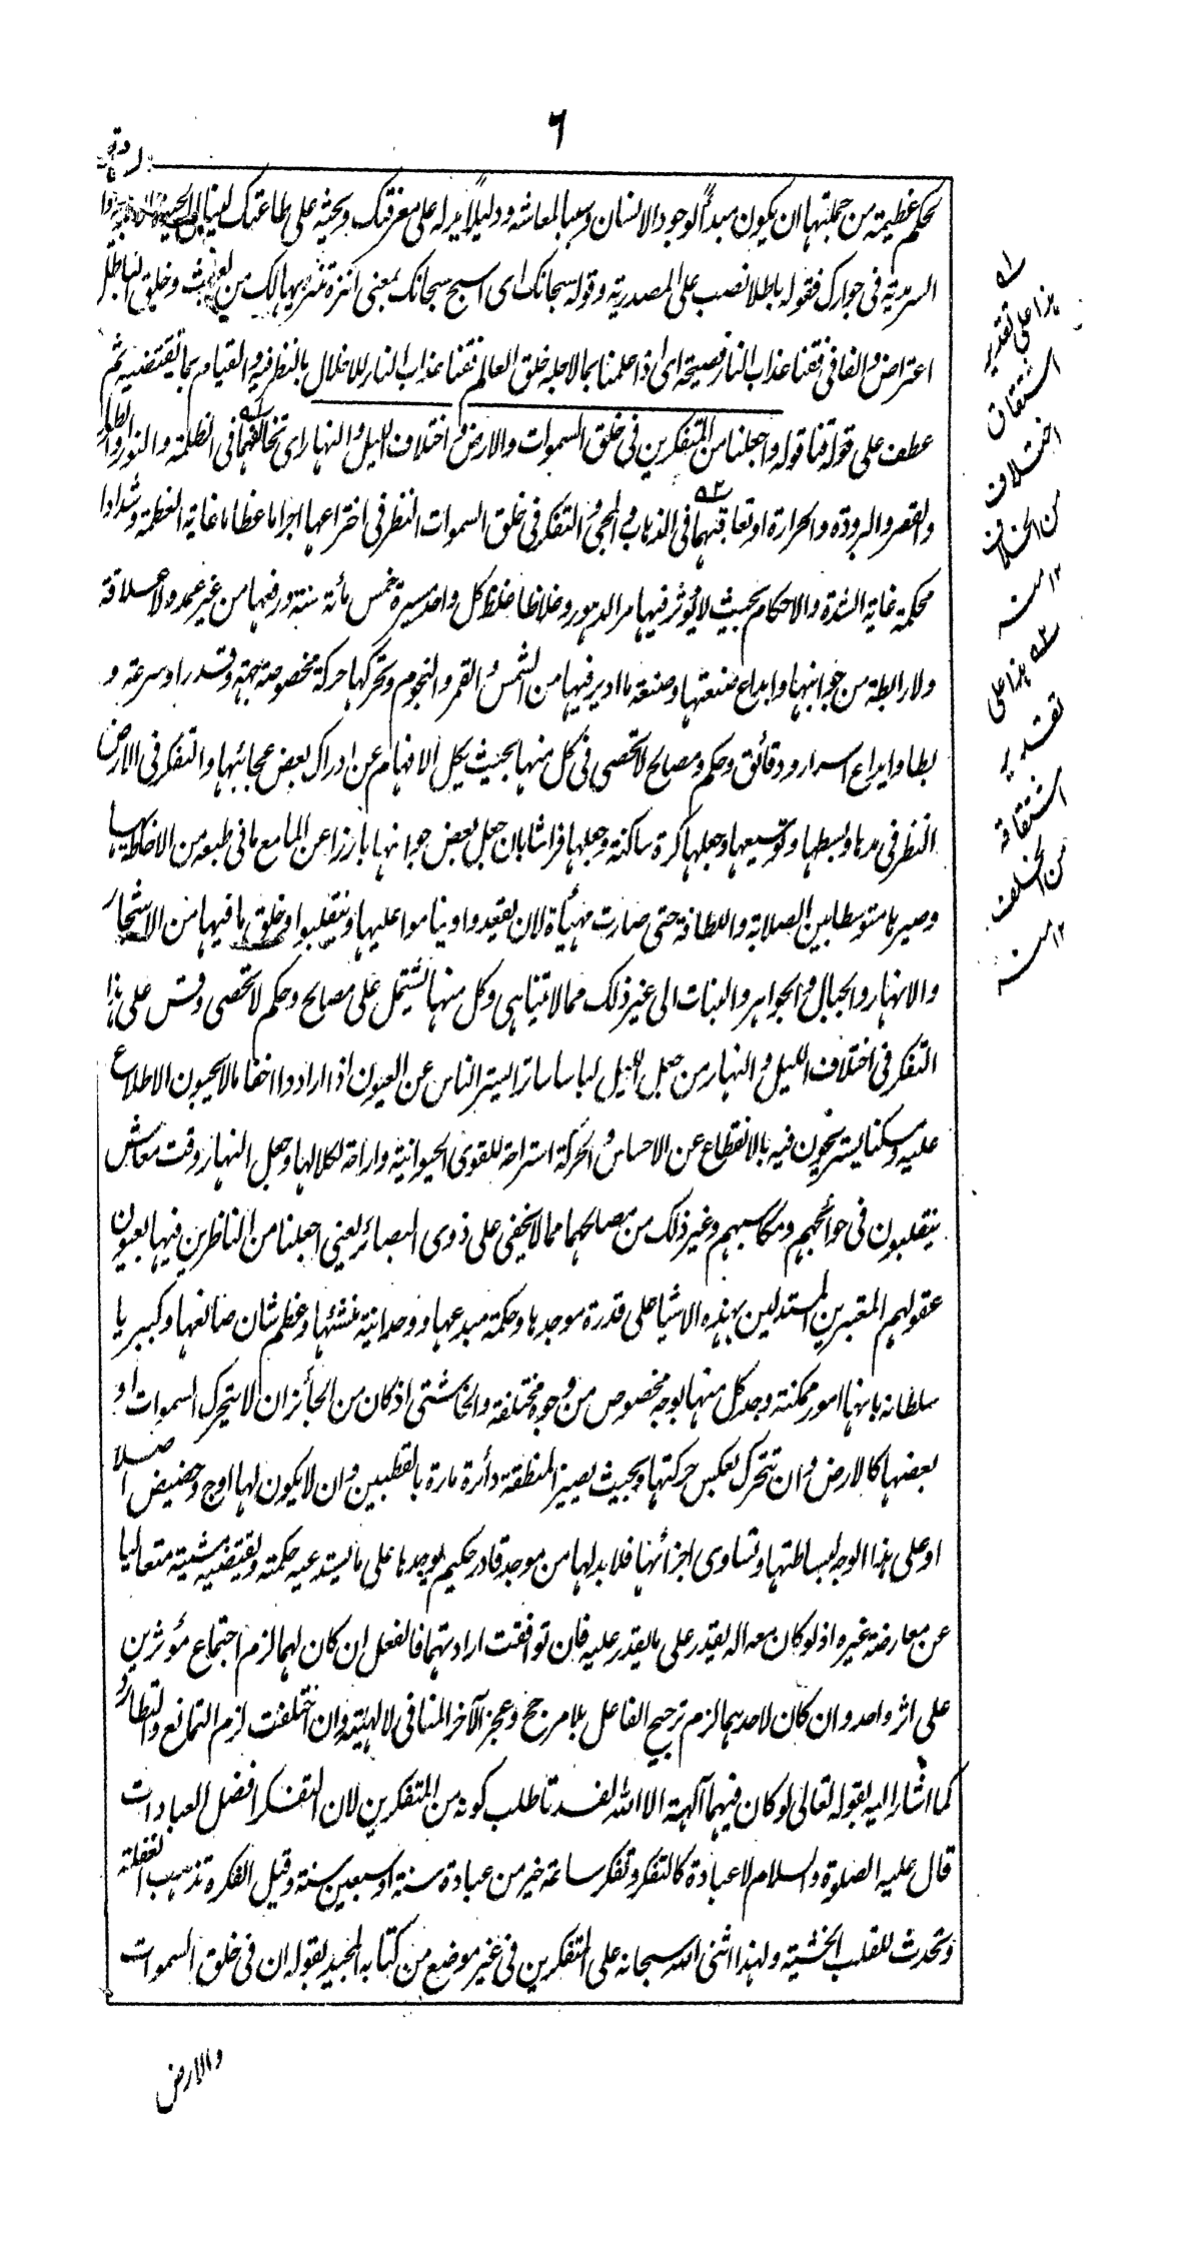 ٦
لحكم عظيمة من جملتها ان يكون مبدأ لوجود الانسان وسببا لمعاشه ودليلاً يدله على معرفتك ويحثه على طاعتك لينال الحيوة
السرمدية فى جوارك فقوله باطلا نصب على المصدرية وقوله سبحانك اى اسبح سبحانك بمعنى انزه تنزيها لك من العبث وخلق الباطل
اعتراض والفا فى فقنا عذاب النار فصيحة اى اذا علمنا بما لاجله خلق العالم فقنا عذاب النار للاخلال بالنظر فيه والقيام بما تقتضيه ثم
عطف على قوله قنا قوله واجعلنا من المتفكرين فى خلق السموات والارض واختلاف الليل والنهار اى تخالفهما فى الظلمة والنور والطول
والقصر والبرودة والحرارة او تعاقبهما فى الذهاب والمجئ والتفكر فى خلق السموات النظر فى اختراعها اجراما عظاما غاية العظمة وشدادا
محكمة غاية الشدة والاحكام بحيث لا يؤثر فيها مر الدهور وغلاظا غلظ كل واحد مسيرة خمس مائة سنة ورفعها من غير عمد ولا علاقة
ولا رابطة من جوانبها وابداع صنعتها وصنعة ما ادير فيها من الشمس والقمر والنجوم وتحركها حركة مخصوصة جهة وقدرا وسرعة و
بطا وايداع اسرار ودقائق وحكم ومصالح لا تحصى فى كل منها بحيث يكل الافهام عن ادراك بعض عجائبها والتفكر فى الارض
النظر فى مدها وبسطها وتوسيعها وجعلها كرة ساكنة وجعلها فراشا بان جعل بعض جوانبها بارزا عن الما مع ما فى طبعه من الاحاطة بها
وصيرها متوسطا بين الصلابة واللطافة حتى صارت مهيأة لان يقعدوا ويناموا عليها ويتقلبوا وخلق ما فيها من الاشجار
والانهار والجبال والجواهر والنبات الى غير ذلك مما لا يتناهى وكل منها يشتمل على مصالح وحكم لا تحصى وقس على هذا
التفكر فى اختلاف الليل والنهار من جعل الليل لباسا ساترا يستر الناس عن العيون اذا ارادوا اخفا ما لا يحبون الاطلاع
عليه وسكنا يستريحون فيه بالانقطاع عن الاحساس والحركة استراحة للقوى الحيوانية واراحة لكلالها وجعل النهار وقت معاش
يتقلبون فى حوائجهم ومكاسبهم وغير ذلك من مصالحهما مما لا يخفى على ذوى البصائر يعنى اجعلنا من الناظرين فيها بعيون
عقولهم المعتبرين المستدلين بهذه الاشيا على قدرة موجدها وحكمة مبدعها ووحدانية منشئها وعظم شان صانعها وكبريا
سلطانه بانها امور ممكنة وجد كل منها بوجه مخصوص من وجوه مختلفة وانحا شتى اذ كان من الجائز ان لا يتحرك السموات او
بعضها كالارض وان تتحرك بعكس حركتها وبحيث يصير المنطقة دائرة مارة بالقطبين وان لا يكون لها اوج وحضيض اصلا
او على هذا الوجه لبساطتها وتساوى اجزائها فلا بد لها من موجد قادر حكيم يوجدها على ما يستدعيه حكمته ويقتضيه مشيته متعاليا
عن معارضة غيره اذ لو كان معه اله يقدر على ما يقدر عليه فان توافقت ارادتهما فالفعل ان كان لهما لزم اجتماع مؤثرين
على اثر واحد وان كان لاحدهما لزم ترجيح الفاعل بلا مرجح وعجز الآخر المنافى لالهيته وان اختلفت لزم التمانع والتطارد
كما اشار اليه بقوله تعالى لو كان فيهما آلهة الا الله لفسدتا طلب كونه من المتفكرين لان التفكر افضل العبادات
قال عليه الصلوة والسلام لا عبادة كالتفكر وتفكر ساعة خير من عبادة سنة او سبعين سنة وقيل الفكرة تذهب الغفلة
وتحدث للقلب الخشية ولهذا اثنى الله سبحانه على المتفكرين فى غير موضع من كتابه المجيد بقوله ان فى خلق السموات
والارض
هذا على تقدير
اشتقاق
اختلاف
من الخلاف
١٢ منه
هذا على
تقدير
اشتقاقه
من الخلف
١٢ منه